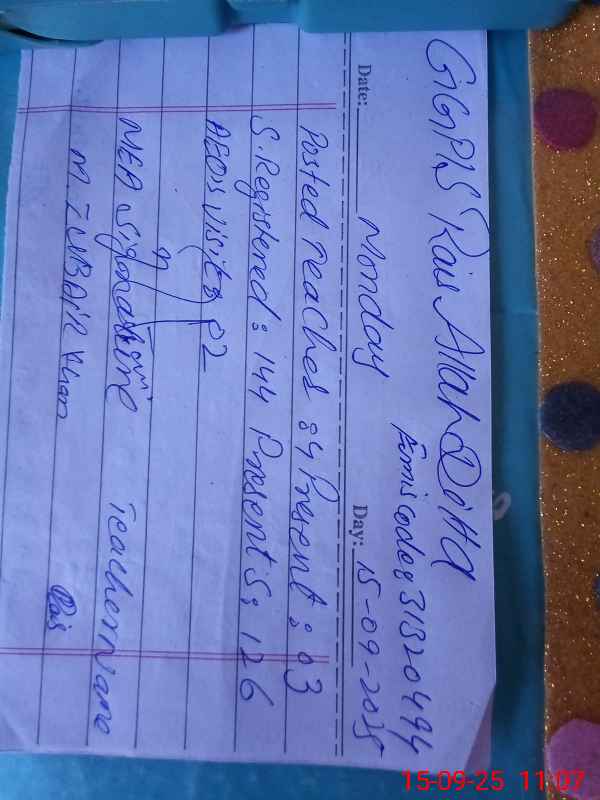 GGPS Rais Allah Ditta
Emis code: 31320494
Date: Monday Day: 15-09-2025
Posted Teaches: 4 Present: 03
S. Registered: 144 Present S: 126
AEOs visits 02
MEA Signature Teacher Name
M. ZUBAIR Khan
15-09-25 11:07